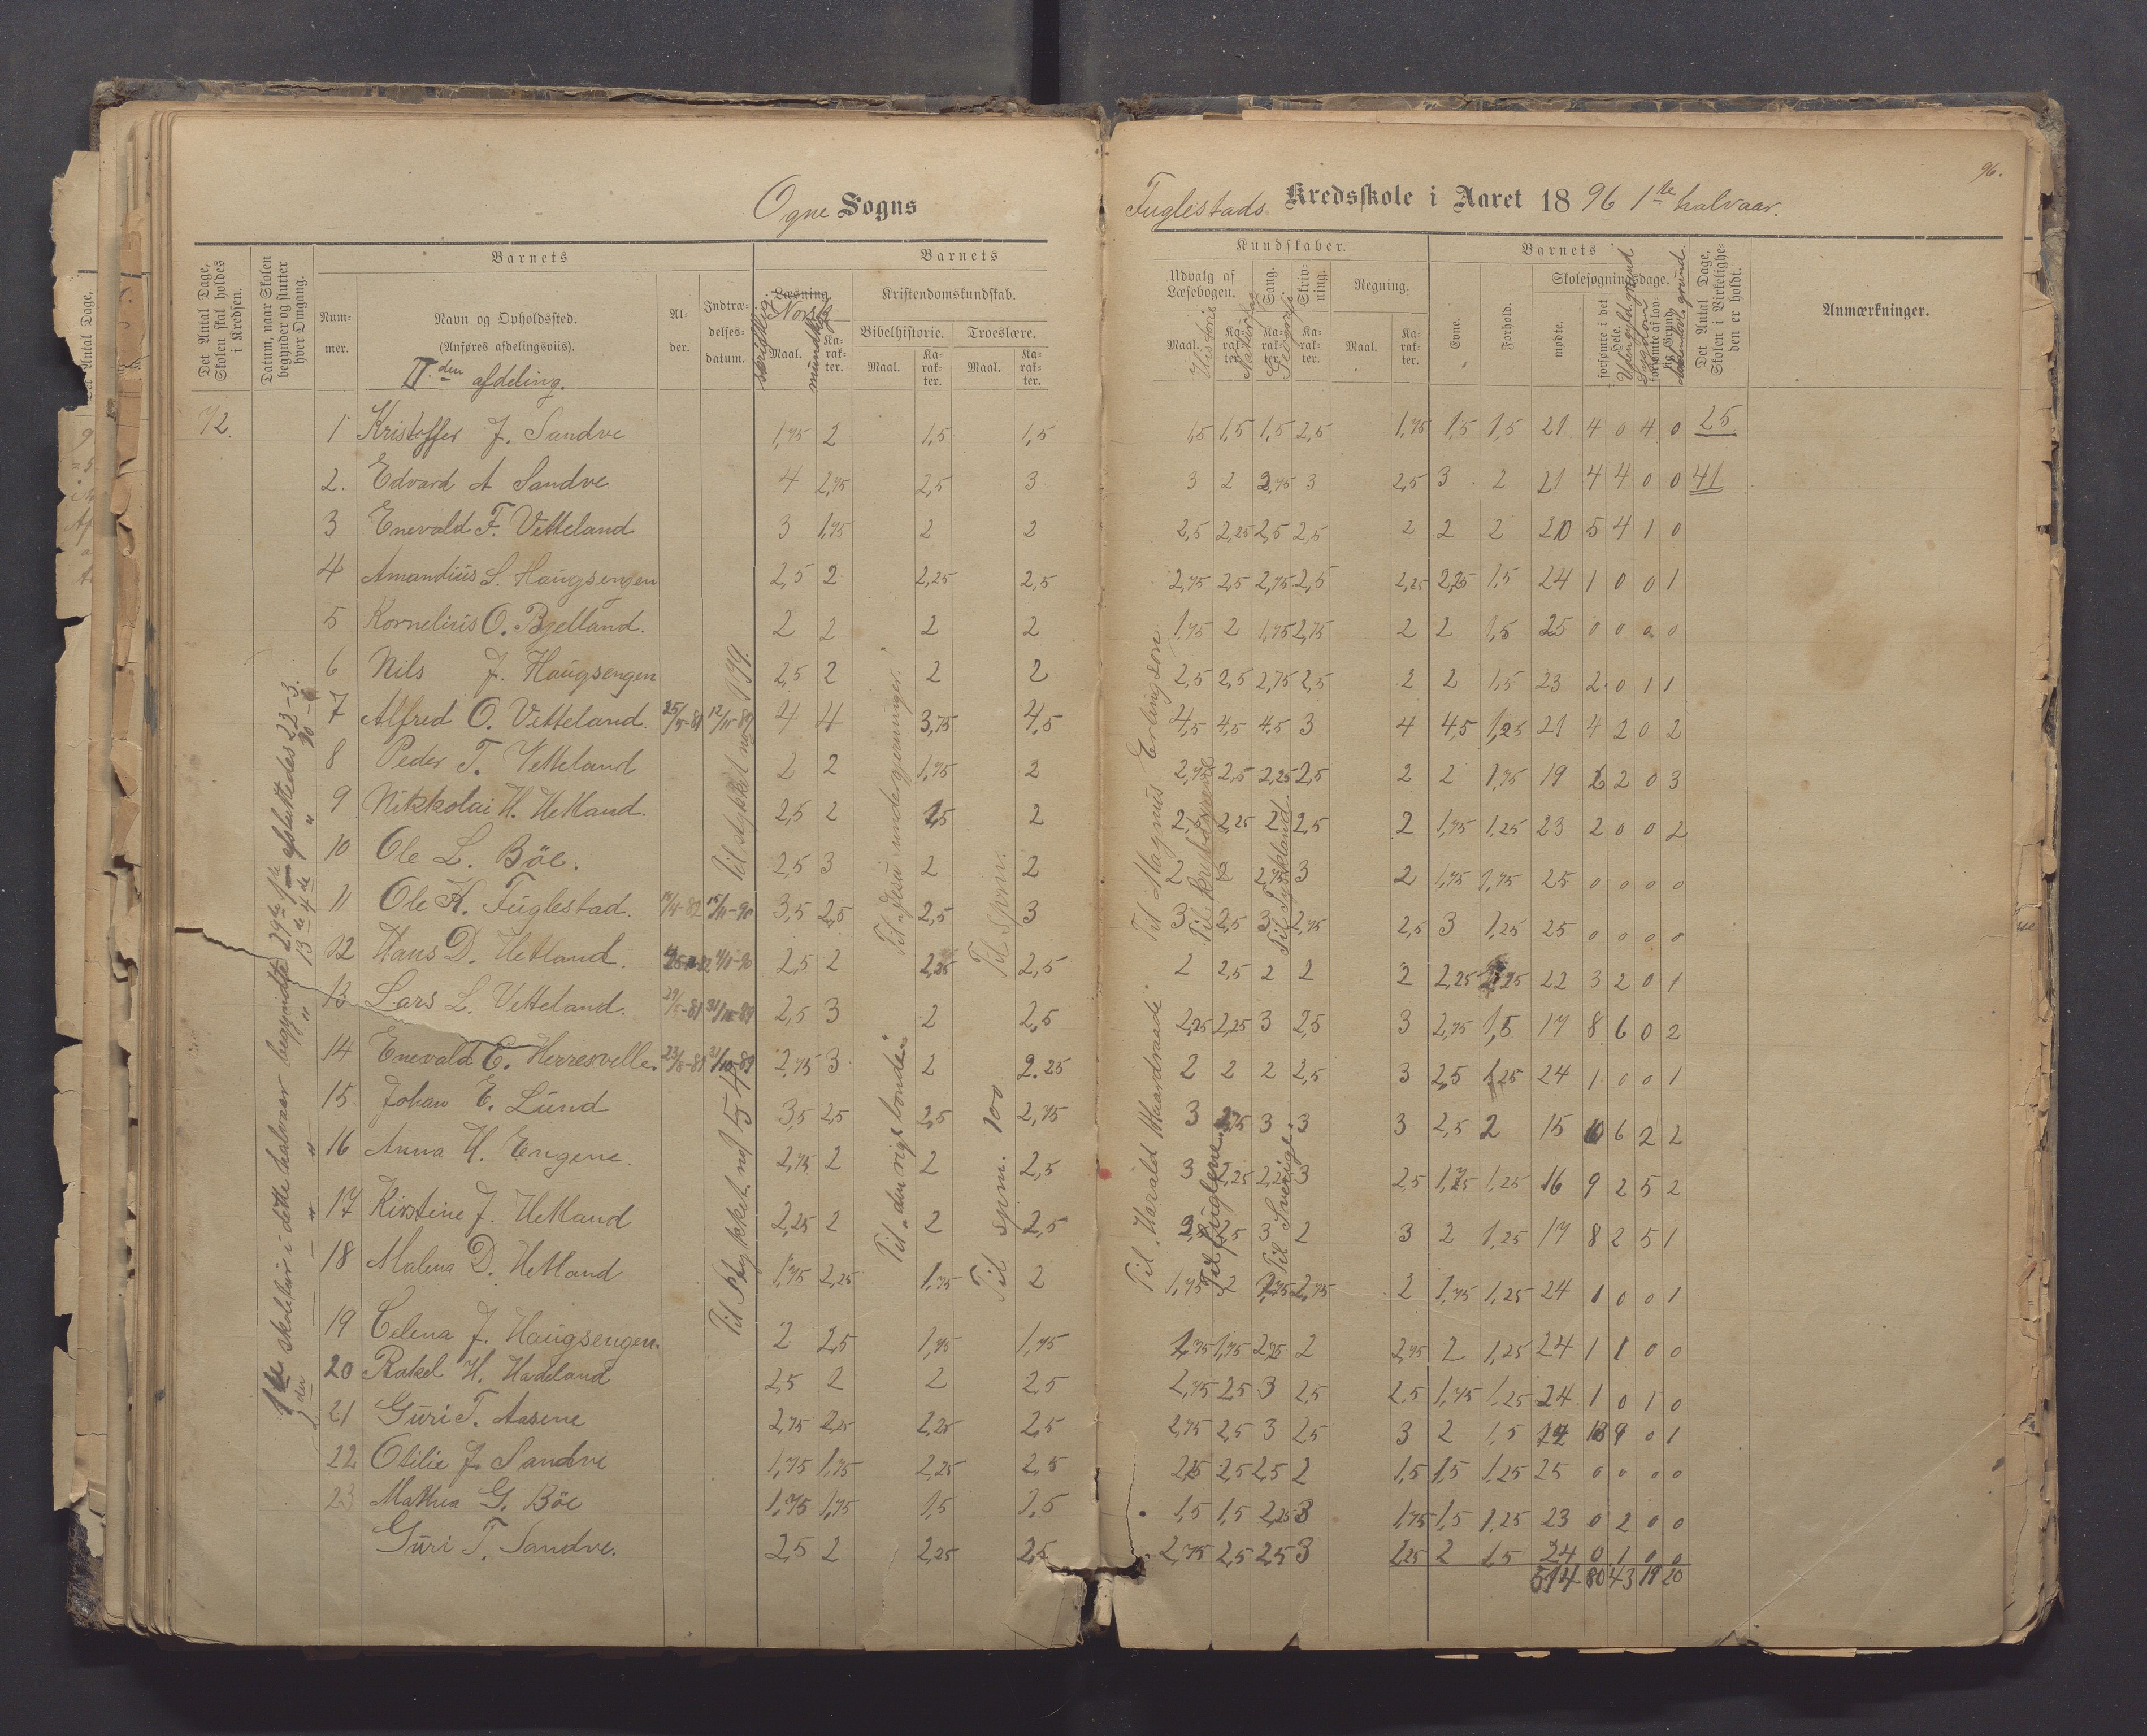 96.
Ogne Sogns
Fuglestads Kredsskole i Aaret 1896 1ste halvaar.
Det Antal Dage, Skolen skal holdes i Kredsen.
Datum, naar Skolen begynder og slutter hver Omgang.
Barnets
Num-mer.
Navn og Opholdssted.
(Anføres afdelingsviis).
IIden afdeling.
Al-der.
Indtræ-delses-datum.
Barnets
Læsning.
Norsk
skriftlig
mundtlig
Maal. Ka-rak-ter.
Kristendomskundskab.
Bibelhistorie. Troeslære.
Maal. Ka-rak-ter. Maal. Ka-rak-ter.
Kundskaber.
Udvalg af Læsebogen. Sang. Skriv-ning. Regning.
Historie
Naturfag
Geografi
Maal. Ka-rak-ter. Ka-rak-ter. Ka-rak-ter. Maal. Ka-rak-ter.
Barnets
Evne. Forhold.
Skolesøgningsdage.
mødte. forsømte i det Hele. forsømte af lov-lig Grund.
Sygdom
Det Antal Dage, Skolen i Virkelighe-den er holdt.
Anmærkninger.
72. 1 Kristoffer J. Sandve 1,75 2 1,5 1,5 1,5 1,5 1,5 2,5 1,75 1,5 1,5 21 4 0 4 0 25
2. Edvard A Sandve 4 2,75 2,5 3 3 2 2,75 3 2,5 3 2 21 4 4 0 0 41
3 Enevald F. Vetteland 3 1,75 2 2 2,5 2,25 2,5 2,5 2 2 2 20 5 4 1 0
4 Amandius L. Haugsengen 2,5 2 2,25 2,5 2,75 2,5 2,75 2,5 2,25 2,25 1,5 24 1 0 0 1
5 Kornelius O. Bjelland. 2 2 2 2 1,75 2 1,75 2,75 2 2 1,5 25 0 0 0 0
6 Nils J. Haugsengen 2,5 2 2 2 2,5 2,5 2,75 2,5 2 2 1,5 23 2 0 1 1
7 Alfred O. Vetteland. 25/5-81 12/10-89 4 4 3,75 4,5 4,5 4,5 4,5 3 4 4,5 1,25 21 4 2 0 2
8 Peder T. Vetteland 2 2 1,75 2 2,75 2,5 2,25 2,5 2 2 1,75 19 6 2 0 3
9 Nikkolai H. Hetland. 2,5 2 2,5 2 2,5 2,25 2 2,5 2 1,75 1,25 23 2 0 0 2
10 Ole L. Böe. 2,5 3 2 2 2 2 2,75 3 2 1,75 1,75 25 0 0 0 0
11 Ole K. Fuglestad. 3,5 2,5 2,5 3 3 2,5 3 2,75 2,5 3 1,25 25 0 0 0 0
12 Hans D. Hetland. 2,5 2 2,25 2,5 2 2,5 2 2 2 2,25 22 3 2 0 1
13 Lars L. Vetteland. 29/5-81 31/10-89 2,5 3 2 2,5 2,25 2,25 3 2,5 3 2,75 1,5 17 8 6 0 2
14 Enevald E. Herresvelle. 23/8-81 31/10-89 2,75 3 2 2.25 2 2 2 2,5 3 2,5 1,25 24 1 0 0 1
15 Johan E. Lund 3,5 2,5 2,5 2,75 3 2,75 3 3 3 2,5 2 15 10 6 2 2
16 Anna H. Engene. 2,75 2 2 2,5 3 2,25 2,25 3 2,5 1,75 1,25 16 9 2 5 2
17 Kirstine J. Hetland 2,25 2 2 2,5 2,5 3 2 3 2 1,25 17 8 2 5 1
18 Malena D. Hetland 1,75 2,25 1,75 2 1,75 2 2,75 2,75 2 1,75 1,25 24 1 0 0 1
19 Celena J. Haugsengen. 2 2,5 1,75 1,75 1,75 1,75 2,25 2 2,75 2 1,25 24 1 1 0 0
20 Rakel H. Hadeland 2,5 2 2 2,5 2,75 2,5 3 2,5 2,5 1,75 1,25 24 1 0 1 0
21 Guri T. Aasene 2,75 2,25 2,25 2,5 2,75 2,5 3 2,5 3 2 1,5 9 0 1
22 Otilie J. Sandve 1,75 1,75 2,25 2,5 2,25 2,5 2,5 2 1,5 1,5 1,25 25 0 0 0 0
23 Mathea G. Böe 1,75 1,75 1,5 1,5 1,5 1,5 2,25 3 1,75 1,5 1,25 23 0 2 0 0
Guri T. Sandve. 2,5 2 2,25 2,5 2,75 2,5 2,5 3 2,25 2 1,5 24 0 1 0 0
514 80 43 19 20
1ste skoletur i dette halvaar begyndte 29de 1ste afsluttedes 23-3.
2den " " " " 13de 4de " 20-6
Til stykket no 99.
Til Stykket no 54
Til "Jesu undergjerninger."
Til "den rige bonde".
Til spm.
Til spm. 100
Til Magnus Erlingsøn
Til "Harald Haardraade".
Til krybdyrene
Til fuglene.
Til Tyskland.
Til Sverige.